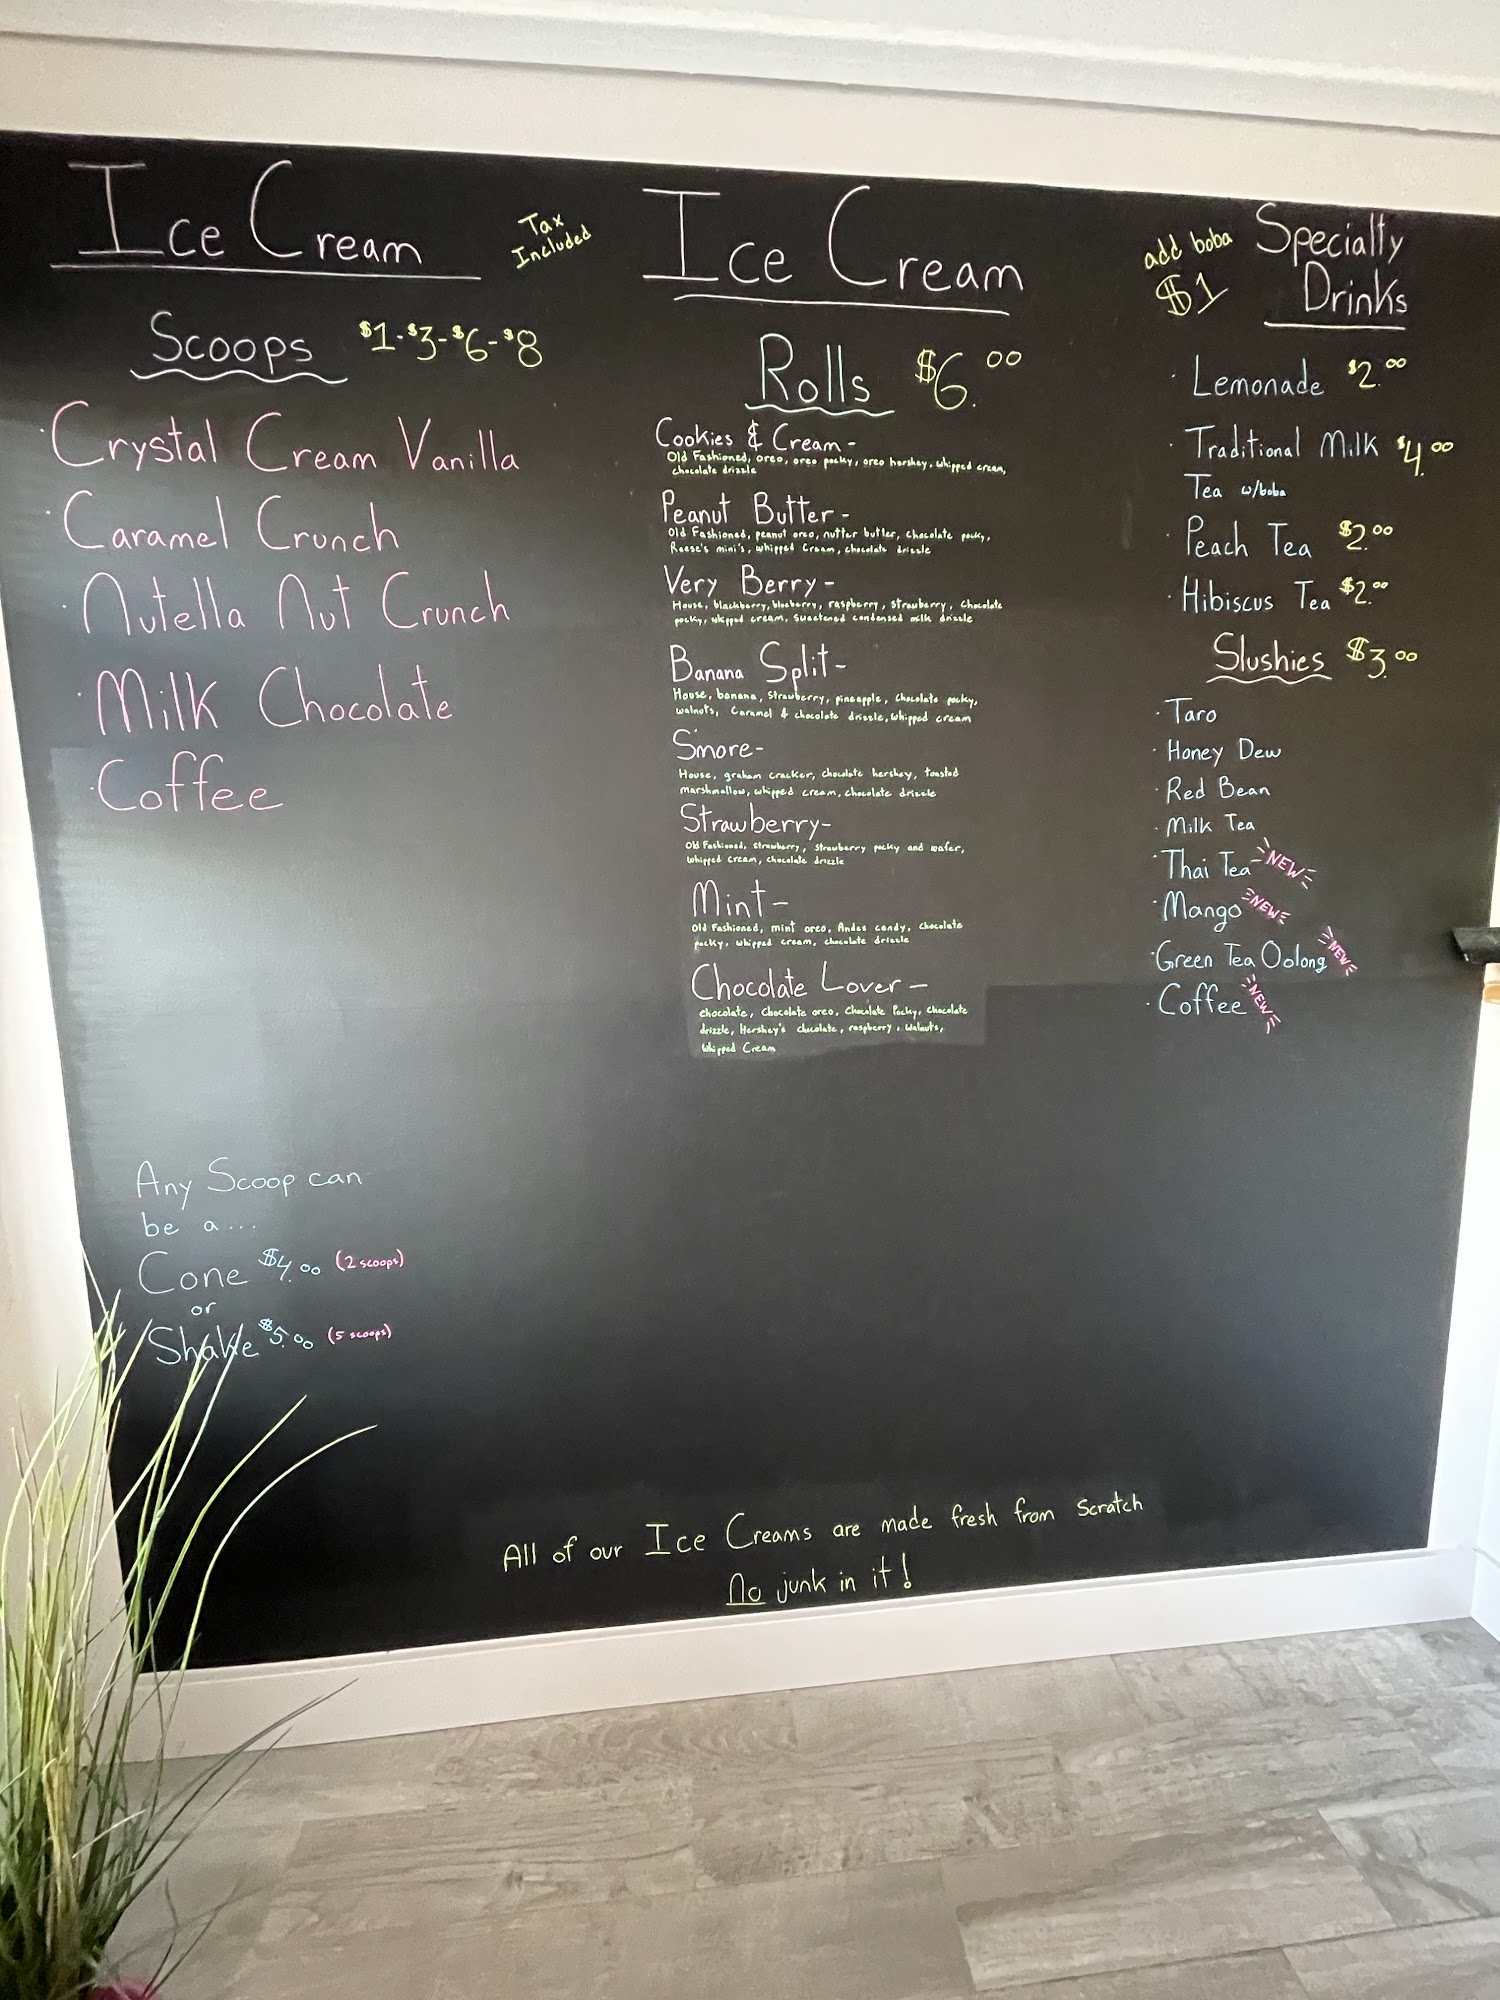 Ice Cream
Tax
Included
Scoops $1-$3-$6-$8
· Crystal Cream Vanilla
· Caramel Crunch
· Nutella Nut Crunch
· Milk Chocolate
· Coffee
Any Scoop can
be a...
Cone $4.00 (2 scoops)
or
Shake $5.00 (5 scoops)
Ice Cream
Rolls $6.00
Cookies & Cream -
Old Fashioned, oreo, oreo pocky, oreo hershey, whipped cream,
chocolate drizzle
Peanut Butter -
Old Fashioned, peanut oreo, nutter butter, chocolate pocky,
Reese's mini's, whipped Cream, chocolate drizzle
Very Berry -
House, blackberry, blueberry, raspberry, strawberry, chocolate
pocky, whipped cream, sweetened condensed milk drizzle
Banana Split -
House, banana, strawberry, pineapple, chocolate pocky,
walnuts, Caramel & chocolate drizzle, whipped cream
S'more -
House, graham cracker, chocolate hershey, toasted
marshmallow, whipped cream, chocolate drizzle
Strawberry -
Old Fashioned, strawberry, strawberry pocky and wafer,
whipped cream, chocolate drizzle
Mint -
Old Fashioned, mint oreo, Andes candy, chocolate
pocky, whipped cream, chocolate drizzle
Chocolate Lover -
chocolate, Chocolate oreo, Chocolate Pocky, Chocolate
drizzle, Hershey's chocolate, raspberry, walnuts,
Whipped Cream
add boba
$1
Specialty
Drinks
· Lemonade $2.00
· Traditional Milk $4.00
Tea w/boba
· Peach Tea $2.00
· Hibiscus Tea $2.00
Slushies $3.00
· Taro
· Honey Dew
· Red Bean
· Milk Tea
· Thai Tea NEW
· Mango NEW
· Green Tea Oolong NEW
· Coffee NEW
All of our Ice Creams are made fresh from scratch
No junk in it!